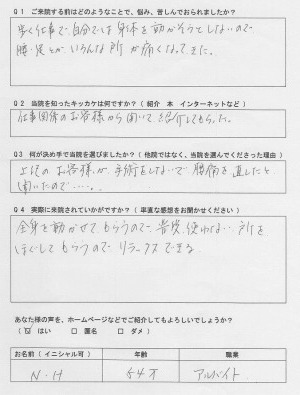 Q1 ご来院する前はどのようなことで、悩み、苦しんでおられましたか？
歩く仕事で自分では身体を動かそうとしないので
腰・足とか、いろんな所が痛くなってきた。
Q2 当院を知ったキッカケは何ですか？（紹介 本 インターネットなど）
仕事関係のお客様から聞いて、紹介してもらった。
Q3 何が決め手で当院を選びましたか？（他院ではなく、当院を選んでくださった理由）
お客様が、手術をしないで腰痛を直したと
聞いたので……。
Q4 実際に来院されていかがですか？（率直な感想をお聞かせください）
全身を動かせてもらうので、普段、使わない所を
ほぐしてもらうのでリラックスできる
あなた様の声を、ホームページなどでご紹介してもよろしいでしょうか？
（☑はい □匿名 □ダメ）
お名前（イニシャル可） 年齢 職業
N・H 54才 アルバイト